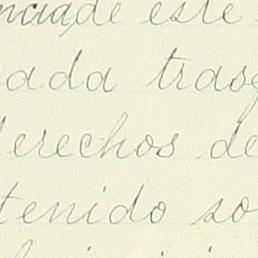 nciade este
ada tras
derechos de
tenido so